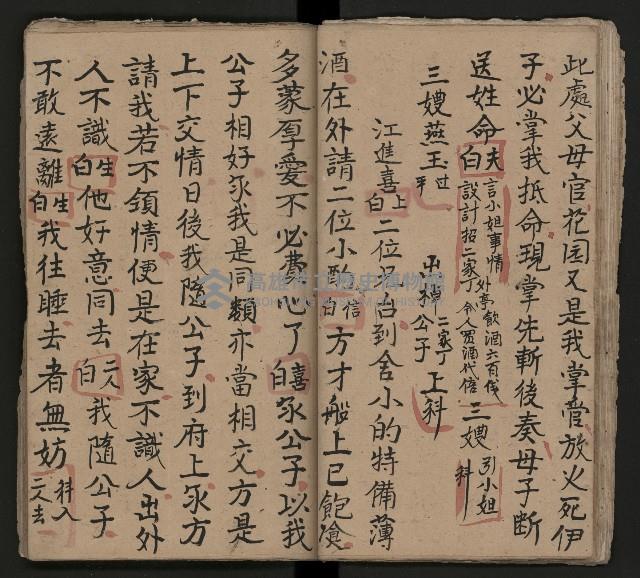 此處父母官花园又是我掌管放火死伊
子必掌我抵命現掌先斬後奏母子断
送姓命白夫言小姐事情外亭飲酒六百伐設計招二家丁令人買酒代信三嫂引小姐科
三嫂燕玉过平出科二家丁公子上科
江進喜上白二位相公到舍小的特備薄
酒在外請二位小酌信白方才船上已飽飡
多蒙厚爱不必費心了喜白家公子以我
公子相好家我是同類亦當相交方是
上下交情日後我隨公子到府上家方
請我若不領情便是在家不識人出外
人不識生白他好意同去二人白我隨公子
不敢遠離生白我往睡去者無妨科入二人去
高雄市立歷史博物館
KAOHSIUNG MUSEUM OF HISTORY